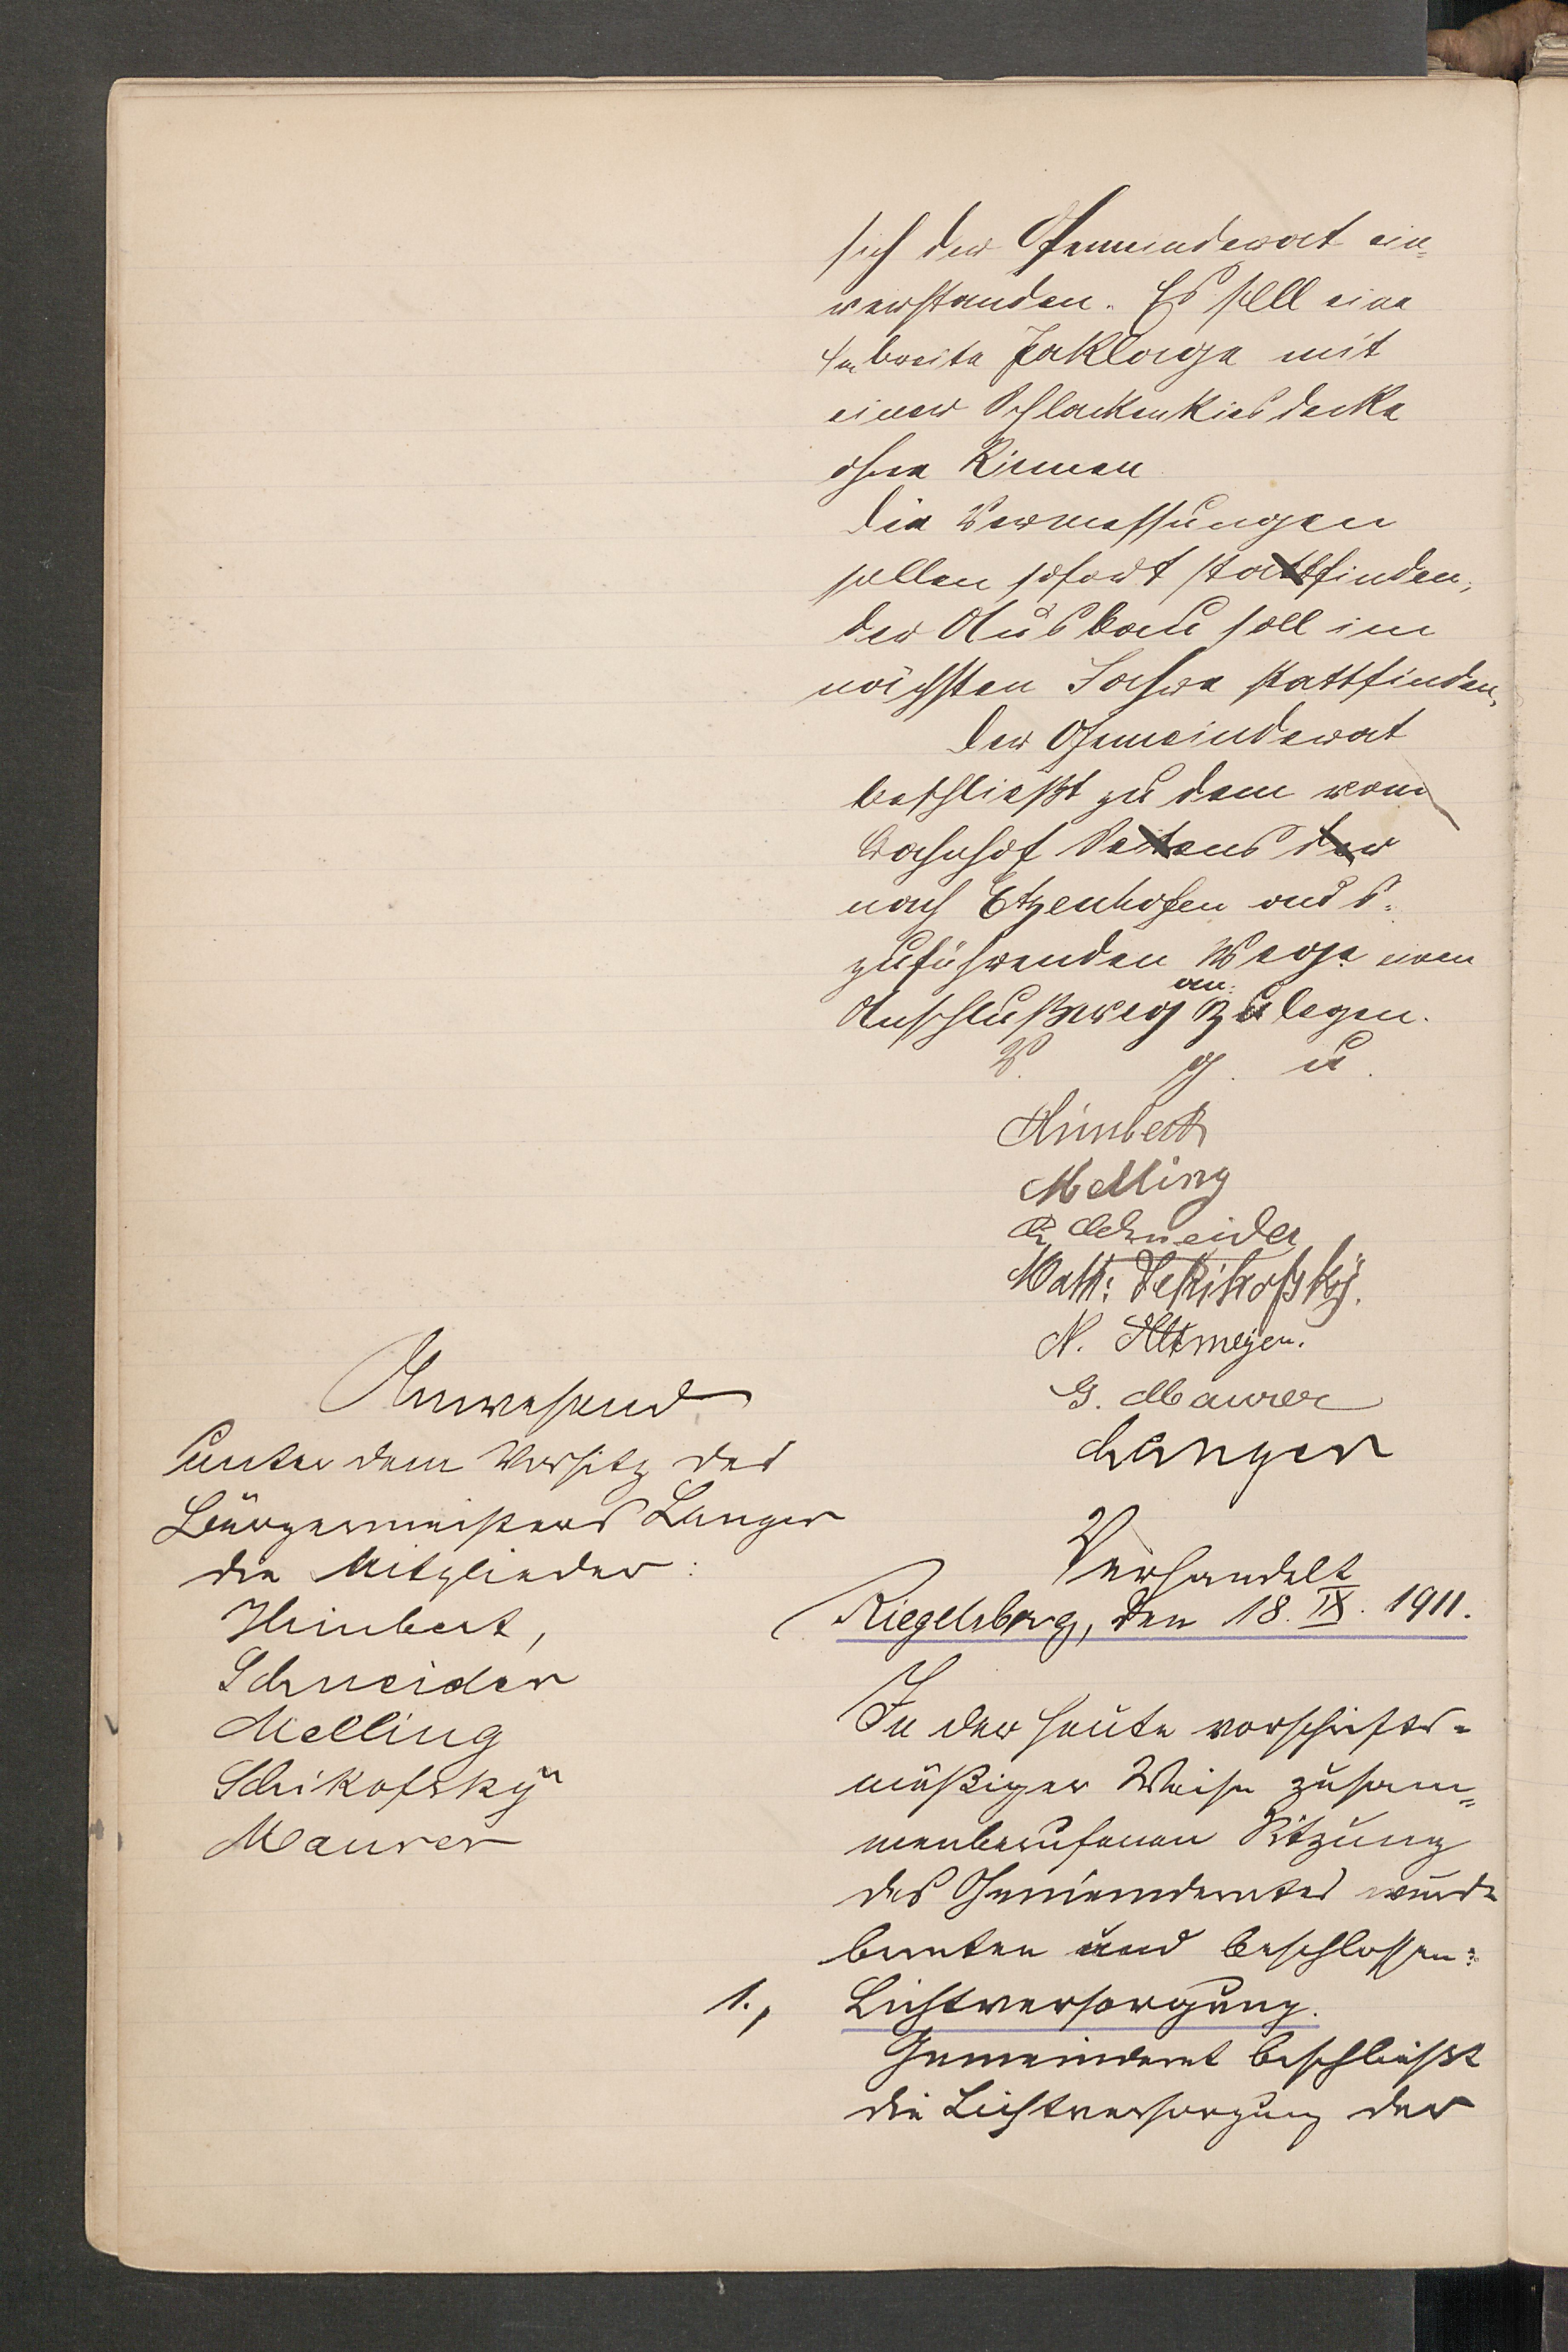 sich der Gemeinderat ein-
verstanden. Es soll eine
4m breite Packlage mit
einer Schlackenkiesdecke
ohne Rinnen
Die Vermessungen
sollen sofort stattfinden,
der Ausbau soll im
nächsten Jahre stattfinden.
Der Gemeinderat
beschließt zu dem vom
Bahnhof Seitens der
nach Etzenhofen aus-
zuführenden Wege einen
an-
Anschlußweg zu legen.
V. g. u.
Himbert
Melling
Schneider
Math: Schikofsky.
N. Altmeyer.
G. Maurer
Langer
Anwesend
unter dem Vorsitz des
Bürgermeisters Langer
die Mitglieder:
Himbert,
Schneider
Melling
Schikofsky
Maurer
Verhandelt
Riegelsberg, den 18. IX. 1911.
In der heute vorschrifts-
mäßiger Weise zusam-
menberufenen Sitzung
des Gemeinderates wurde
beraten und beschlossen:
1., Lichtversorgung.
Gemeinderat beschließt
die Lichtversorgung der